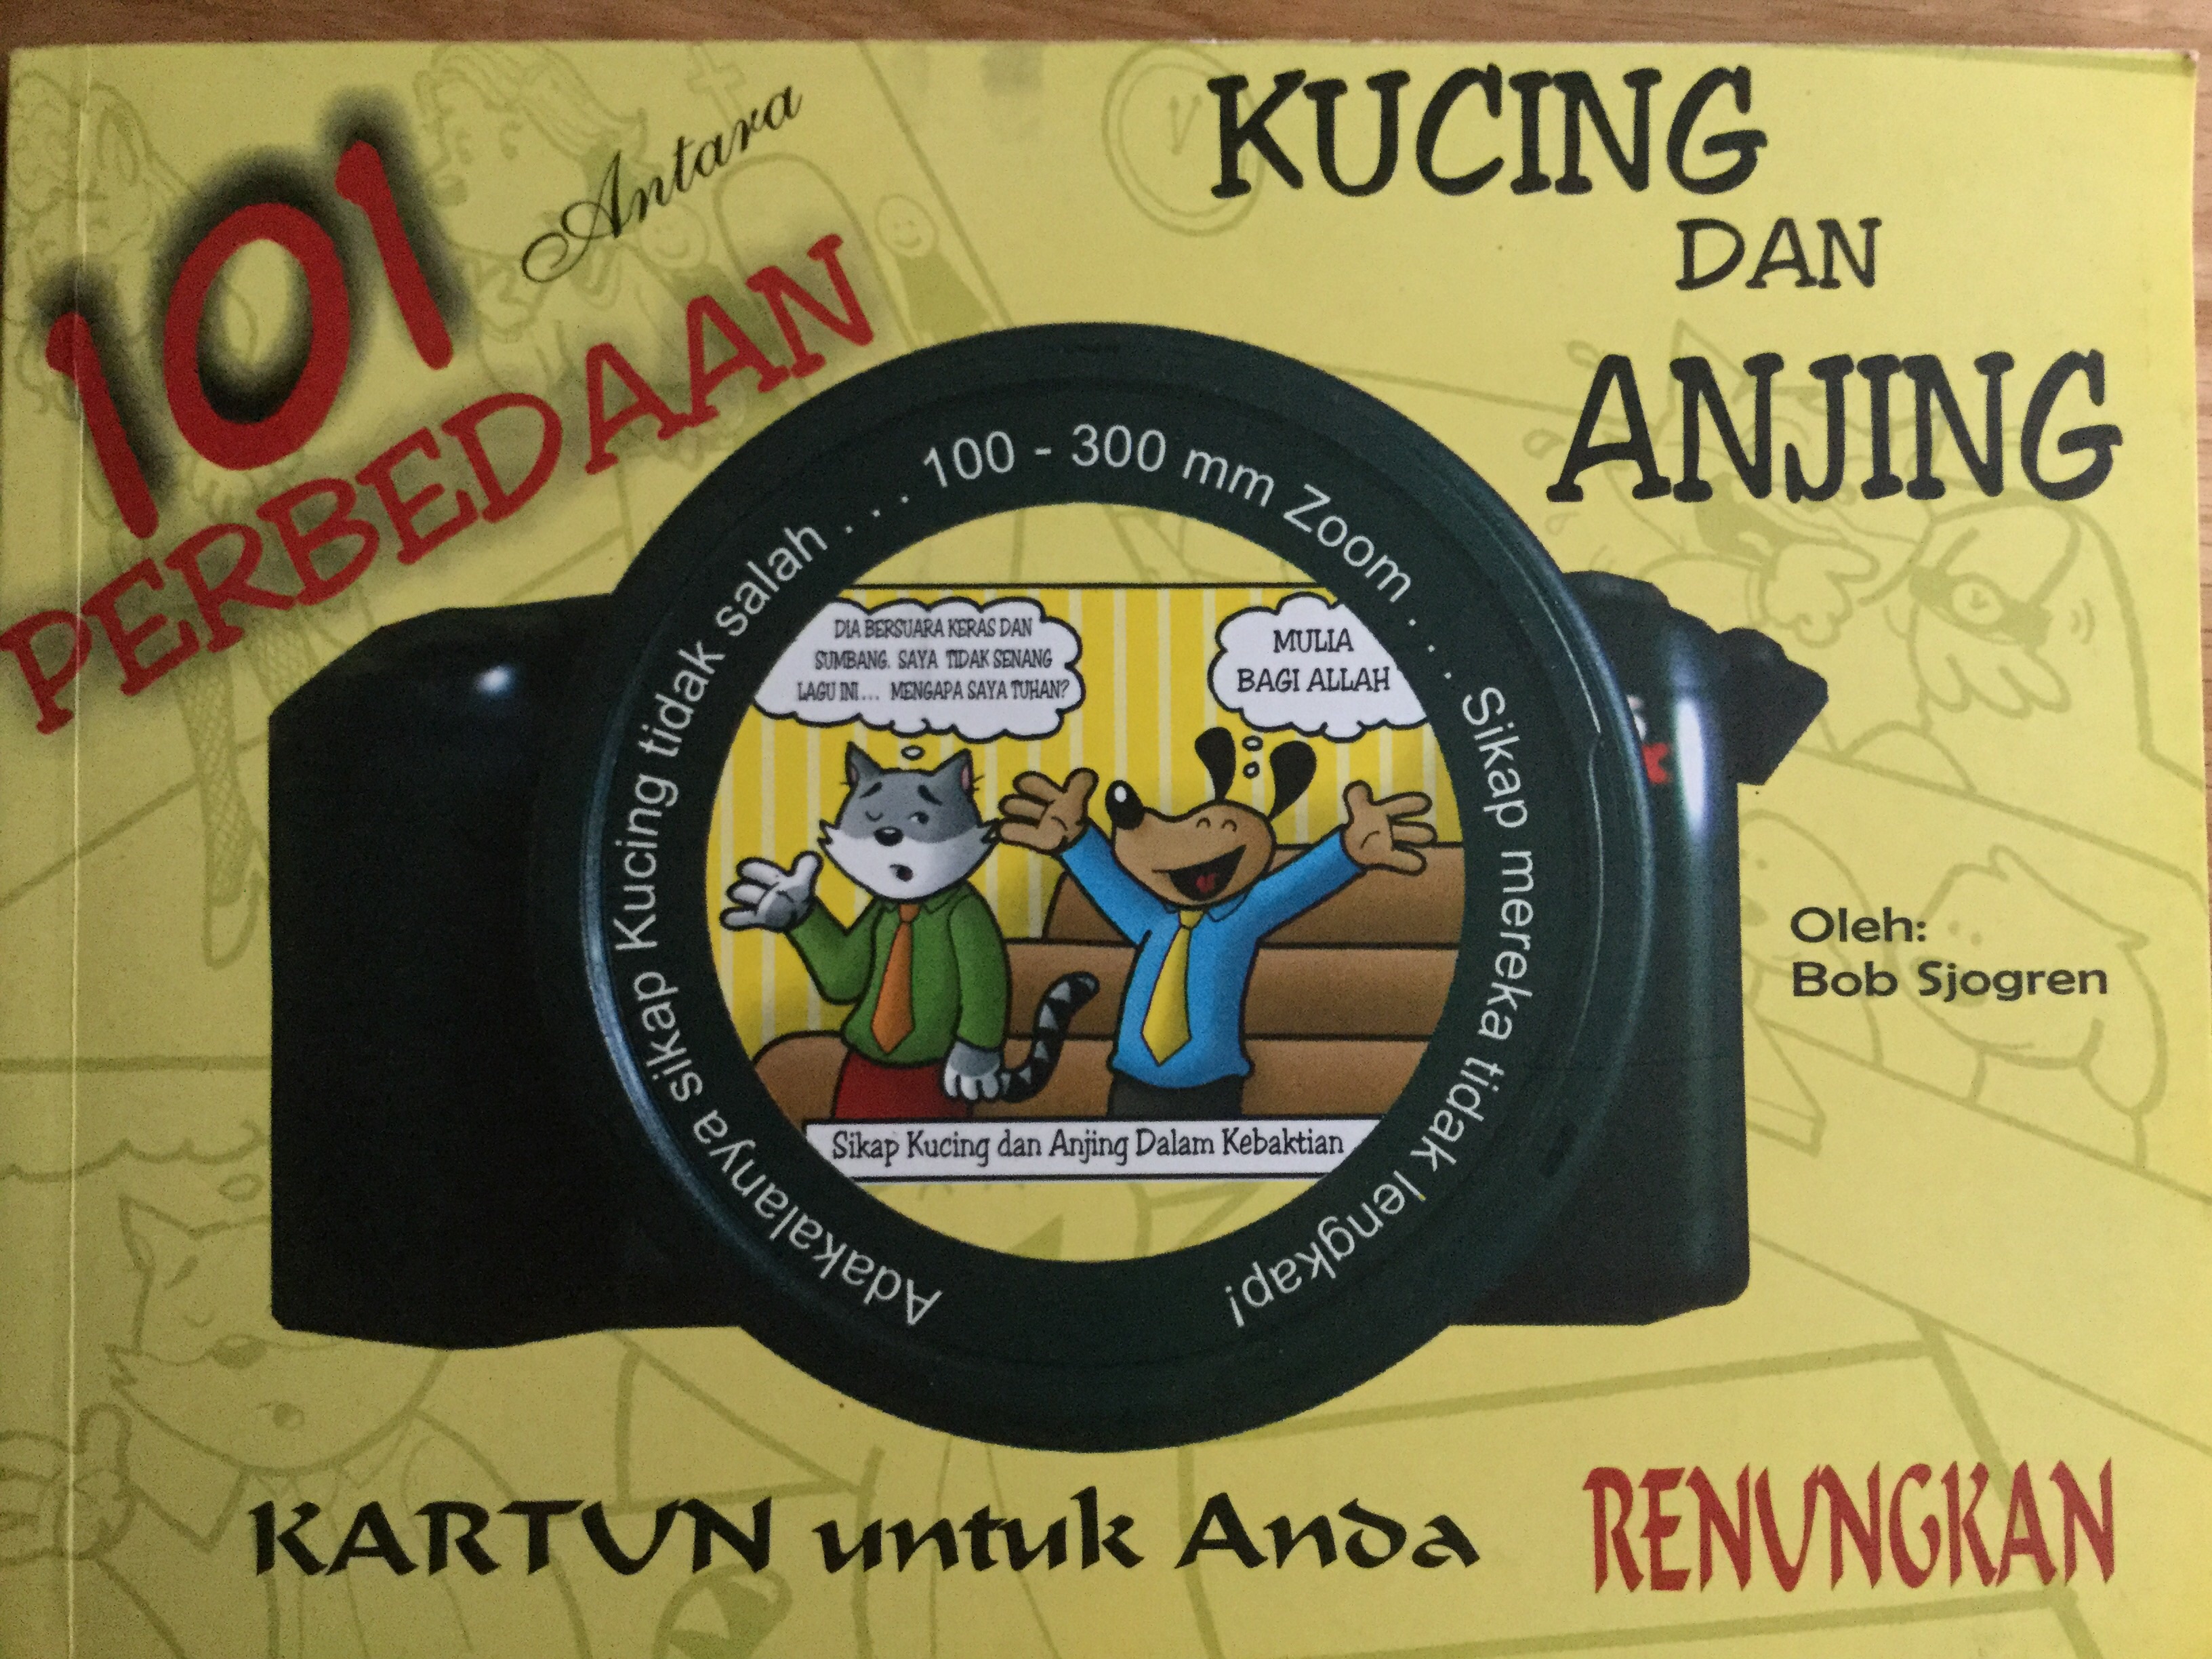 101
Antara
PERBEDAAN
KUCING
DAN
ANJING
Adakalanya sikap Kucing tidak salah . . . 100 - 300 mm Zoom . . . Sikap mereka tidak lengkap!
DIA BERSUARA KERAS DAN
SUMBANG. SAYA TIDAK SENANG
LAGU INI... MENGAPA SAYA TUHAN?
MULIA
BAGI ALLAH
Sikap Kucing dan Anjing Dalam Kebaktian
Oleh:
Bob Sjogren
KARTUN untuk Anda RENUNGKAN